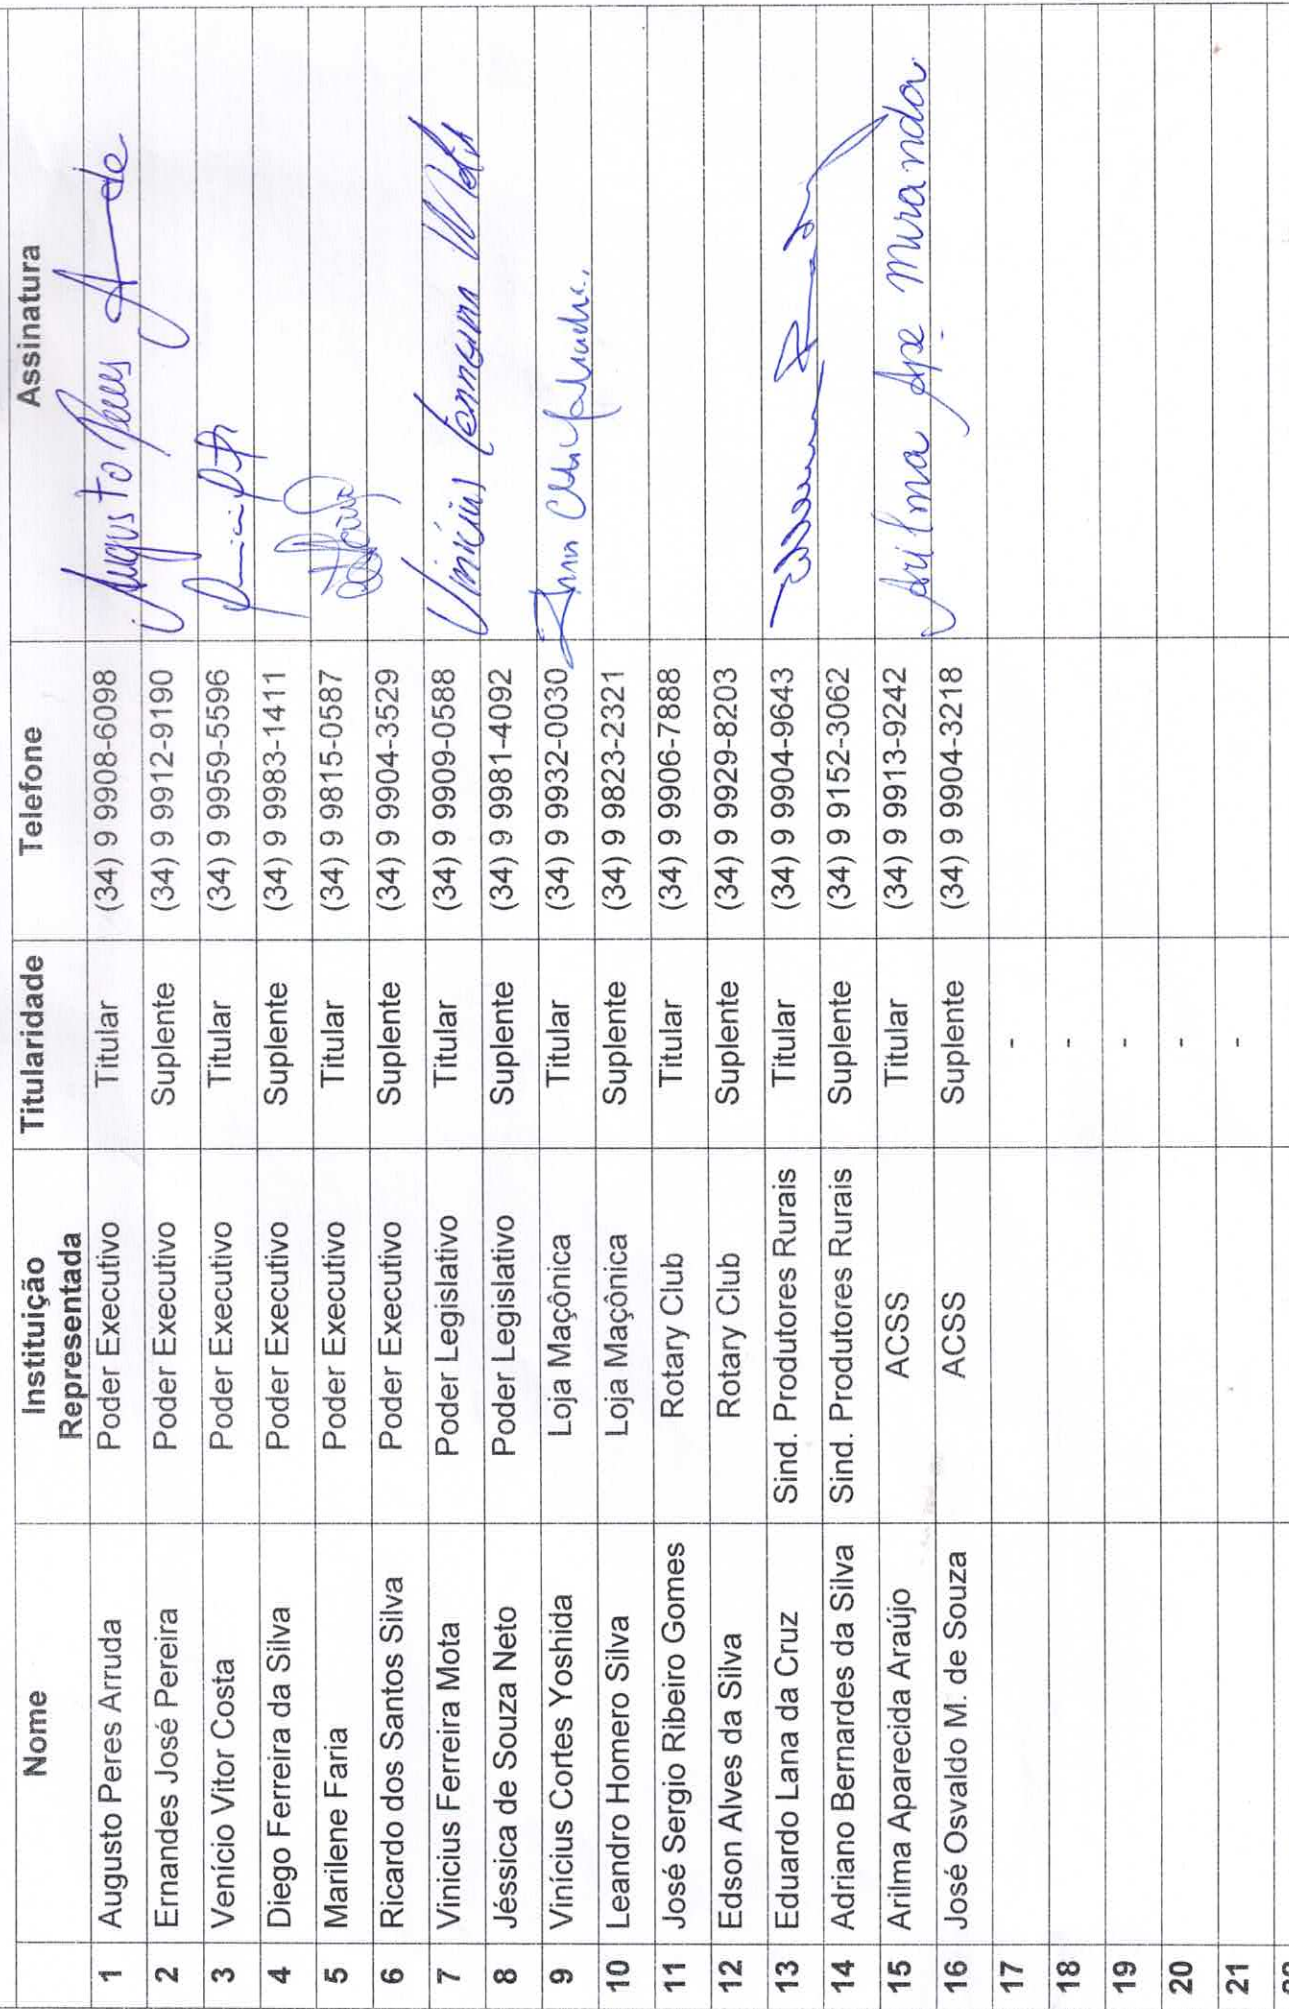 Nome Instituição Representada Titularidade Telefone Assinatura
1 Augusto Peres Arruda Poder Executivo Titular (34) 9 9908-6098 Augusto Peres
2 Ernandes José Pereira Poder Executivo Suplente (34) 9 9912-9190
3 Venício Vitor Costa Poder Executivo Titular (34) 9 9959-5596
4 Diego Ferreira da Silva Poder Executivo Suplente (34) 9 9983-1411
5 Marilene Faria Poder Executivo Titular (34) 9 9815-0587
6 Ricardo dos Santos Silva Poder Executivo Suplente (34) 9 9904-3529
7 Vinicius Ferreira Mota Poder Legislativo Titular (34) 9 9909-0588 Vinicius Ferreira
8 Jéssica de Souza Neto Poder Legislativo Suplente (34) 9 9981-4092
9 Vinícius Cortes Yoshida Loja Maçônica Titular (34) 9 9932-0030
10 Leandro Homero Silva Loja Maçônica Suplente (34) 9 9823-2321
11 José Sergio Ribeiro Gomes Rotary Club Titular (34) 9 9906-7888
12 Edson Alves da Silva Rotary Club Suplente (34) 9 9929-8203
13 Eduardo Lana da Cruz Sind. Produtores Rurais Titular (34) 9 9904-9643
14 Adriano Bernardes da Silva Sind. Produtores Rurais Suplente (34) 9 9152-3062
15 Arilma Aparecida Araújo ACSS Titular (34) 9 9913-9242 Arilma Apª Miranda
16 José Osvaldo M. de Souza ACSS Suplente (34) 9 9904-3218
17 -
18 -
19 -
20 -
21 -